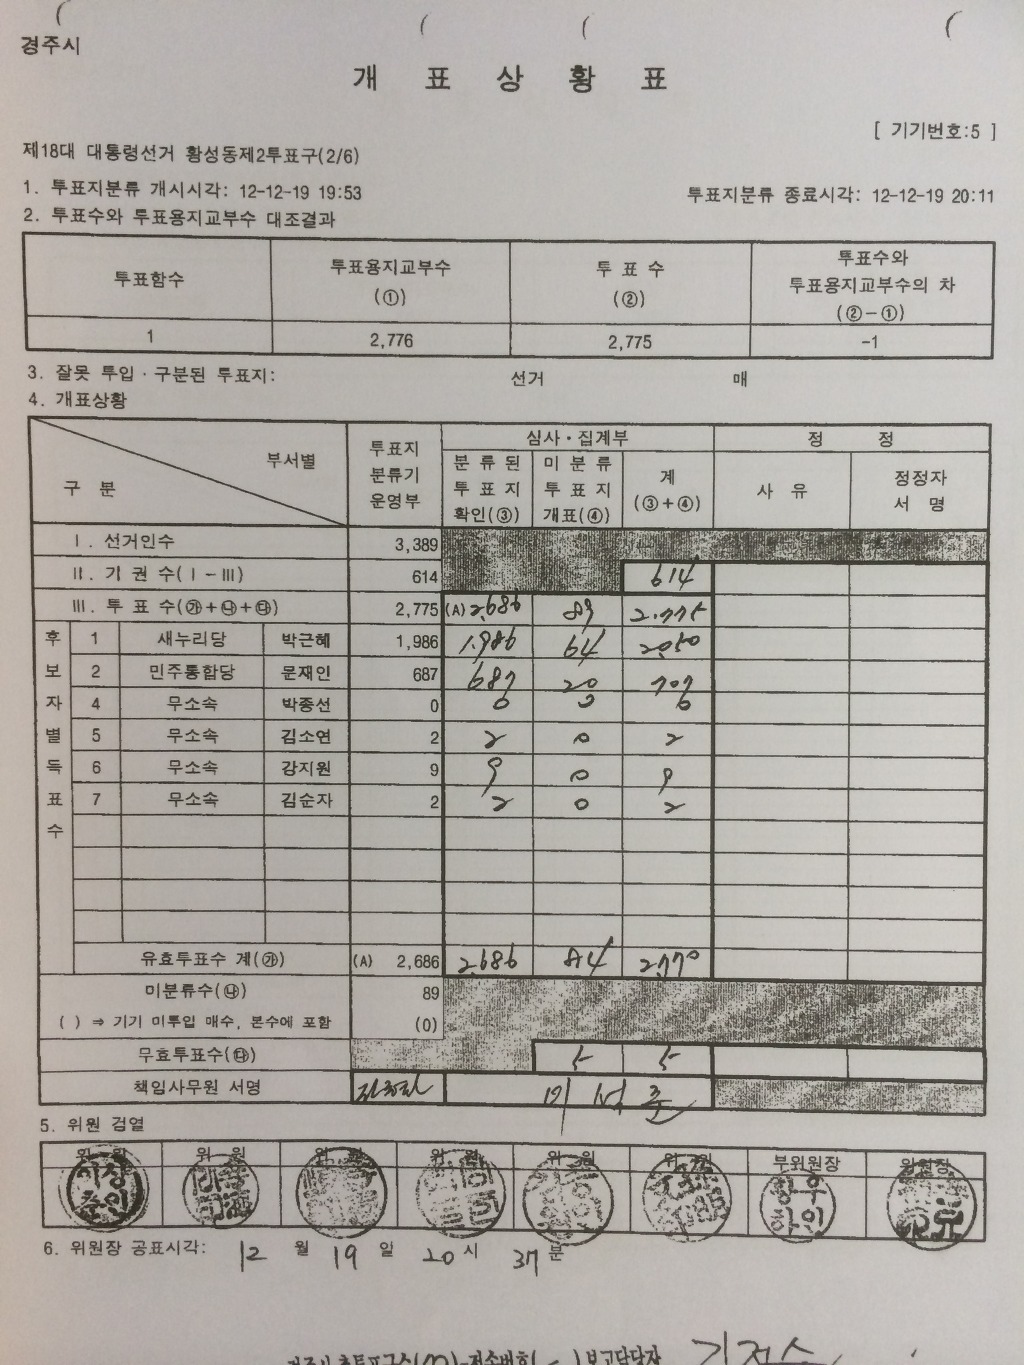 경주시
개 표 상 황 표
[ 기기번호:5 ]
제18대 대통령선거 황성동제2투표구(2/6)
1. 투표지분류 개시시각: 12-12-19 19:53 투표지분류 종료시각: 12-12-19 20:11
2. 투표수와 투표용지교부수 대조결과
투표함수 투표용지교부수 (①) 투 표 수 (②) 투표수와 투표용지교부수의 차 (②-①)
1 2,776 2,775 -1
3. 잘못 투입·구분된 투표지: 선거 매
4. 개표상황
부서별 구 분 투표지 분류기 운영부 심사·집계부 정 정
분 류 된 투 표 지 확인(③) 미 분 류 투 표 지 개표(④) 계 (③+④) 사 유 정정자 서 명
Ⅰ. 선거인수 3,389
Ⅱ. 기 권 수(Ⅰ-Ⅲ) 614 614
Ⅲ. 투 표 수(㉮+㉯+㉰) 2,775 (A) 2,686 89 2,775
후보자별득표수
1 새누리당 박근혜 1,986 1,986 64 2,050
2 민주통합당 문재인 687 687 20 707
4 무소속 박종선 0 0 0 0
5 무소속 김소연 2 2 0 2
6 무소속 강지원 9 9 0 9
7 무소속 김순자 2 2 0 2
유효투표수 계(㉮) (A) 2,686 2,686 84 2,770
미분류수(㉯) 89
( ) ⇒ 기기 미투입 매수, 본수에 포함 (0)
무효투표수(㉰) 5 5
책임사무원 서명
5. 위원 검열
위 원 위 원 위 원 위 원 위 원 위 원 부위원장 위원장
6. 위원장 공표시각: 12 월 19 일 20 시 37 분